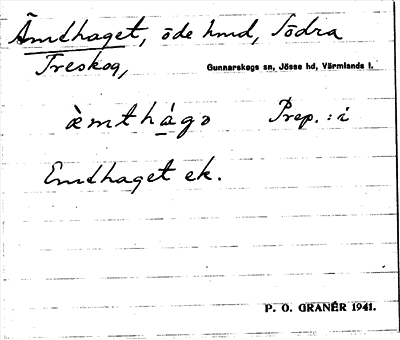 Ämthaget, öde hmd, Södra
Treskog, Gunnarskogs sn, Jösse hd, Värmlands l.
ä̀mthá̱gə Prep.: i
Emthaget ek.
P. O. GRANÉR 1941.